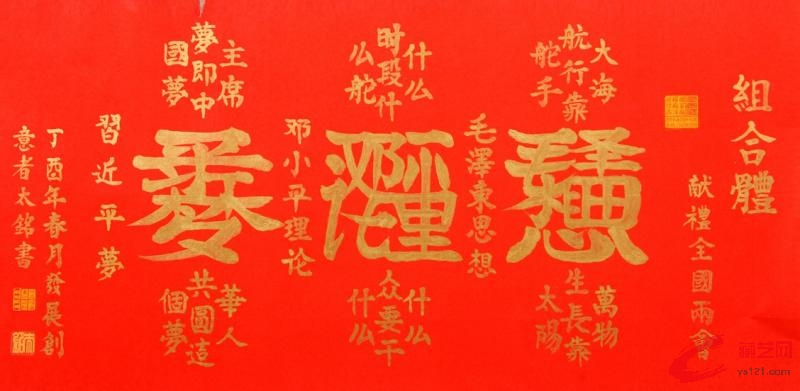 組合體
献禮全國兩會
大海
航行靠
舵手
萬物
生長靠
太陽
毛澤東思想
什么
时段什
么舵
什么
众要干
什么
邓小平理论
主席
夢即中
國夢
華人
共圆這
個夢
習近平夢
丁酉年春月發展創
意者太銘書
ys121.com